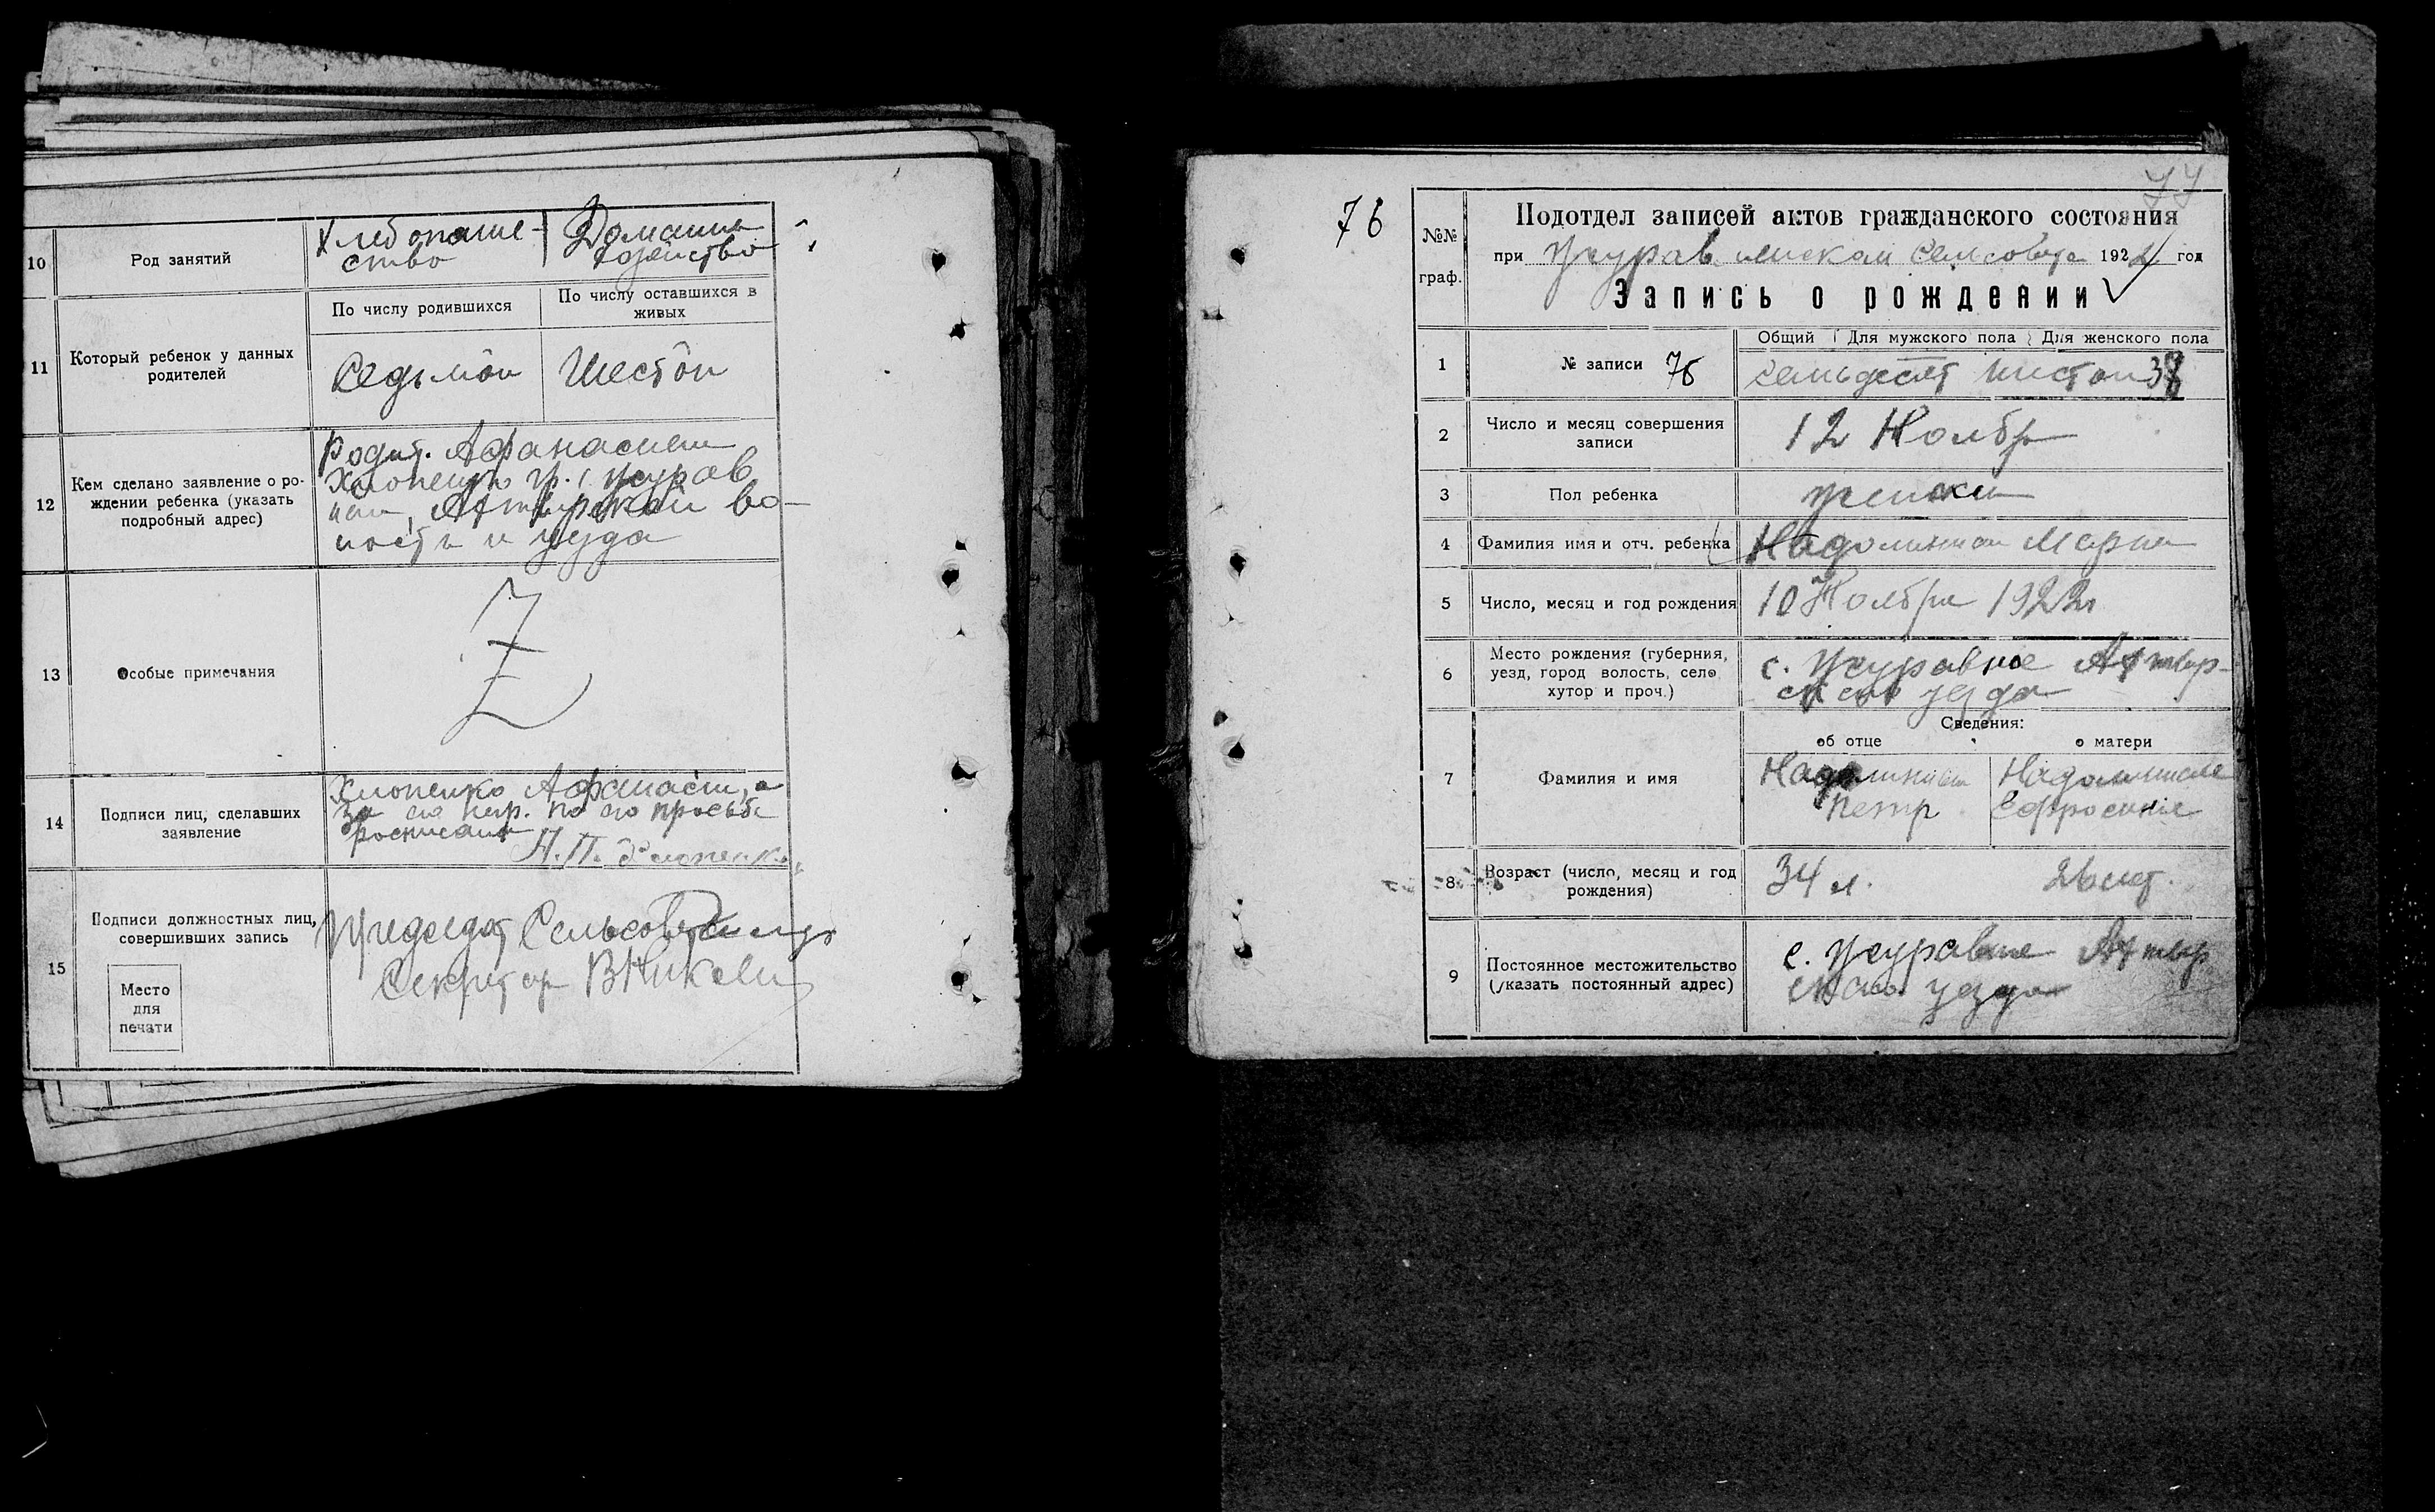 10 Род занятий Хлебопаше- Домашнее
ство хозяйство
11 Который ребенок у данных родителей
По числу родившихся По числу оставшихся в живых
Седьмой Шестой
12 Кем сделано заявление о ро-
ждении ребенка (указать
подробный адрес)
Родит. Афанасием
Хлопенко гр. с. Журав
волость и уезда
13 Особые примечания
Z
14 Подписи лиц, сделавших
заявление
Хлопенко Афанасий, а
за его негр. по его просьбе
росписался
Н. П. Хлопенко
15 Подписи должностных лиц,
совершивших запись
Председат Сельсовета
Секретарь
Место
для
печати
77
76
№№
граф.
Подотдел записей актов гражданского состояния
при Журавлинском сельсовете 1922 год
Запись о рождении
Общий Для мужского пола Для женского пола
1 № записи 76 семьдесят шестой 38
2 Число и месяц совершения
записи
12 Ноября
3 Пол ребенка женский
4 Фамилия имя и отч. ребенка Мария
5 Число, месяц и год рождения 10 Ноября 1922
6 Место рождения (губерния,
уезд, город волость, село
хутор и проч.)
с. Журавное
ского уезда
Сведения:
об отце о матери
7 Фамилия и имя
Петр Ефросиния
8 Возраст (число, месяц и год
рождения)
34 л. 26 лет.
9 Постоянное местожительство
(указать постоянный адрес)
с. Журавное
ского уезда